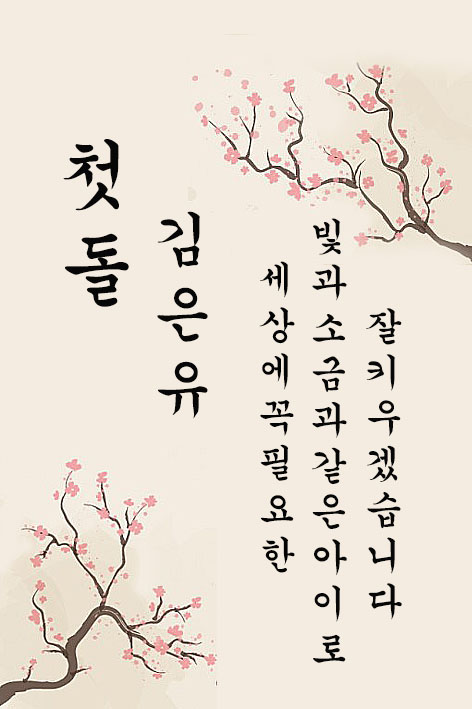 첫돌
김은유
세상에꼭필요한
빛과소금과같은아이로
잘키우겠습니다